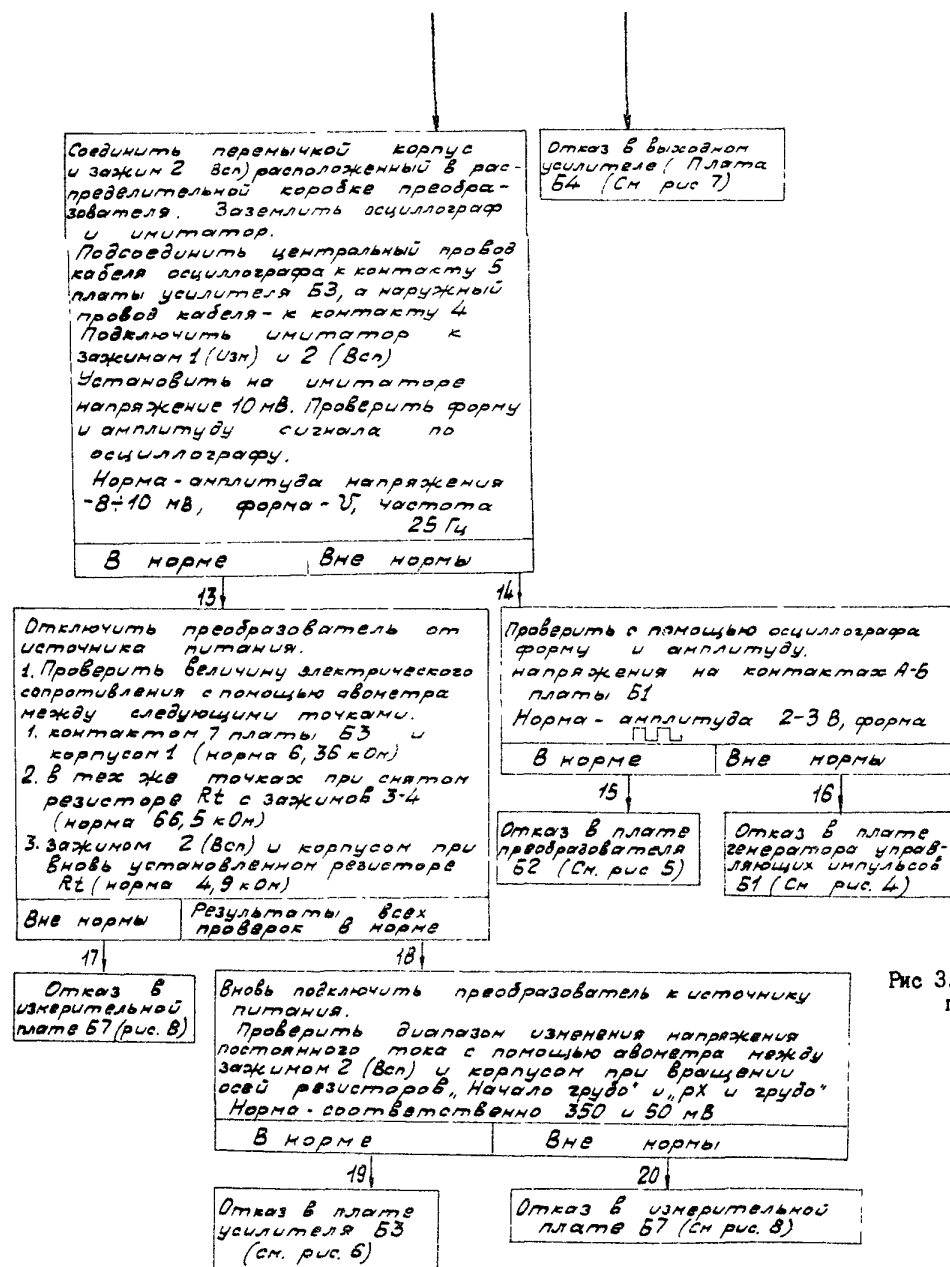 Соединить перемычкой корпус
и зажим 2 Всп) расположенный в рас-
пределительной коробке преобра-
зователя. Заземлить осциллограф
и имитатор.
Подсоединить центральный провод
кабеля осциллографа к контакту 5
платы усилителя Б3, а наружный
провод кабеля - к контакту 4
Подключить имитатор к
зажимам 1 (Изм) и 2 (Всп)
Установить на имитаторе
напряжение 10 мВ. Проверить форму
и амплитуду сигнала по
осциллографу.
Норма - амплитуда напряжения
-8÷10 мВ, форма - U, частота
25 Гц
В норме Вне нормы
Отказ в выходном
усилителе ( Плата
Б4 (См рис 7)
13
14
Отключить преобразователь от
источника питания.
1. Проверить величину электрического
сопротивления с помощью авометра
между следующими точками.
1. контактом 7 платы Б3 и
корпусом 1 (норма 6,36 кОм)
2. в тех же точках при снятом
резисторе Rt с зажимов 3-4
(норма 66,5 кОм)
3. зажимом 2 (Всп) и корпусом при
вновь установленном резисторе
Rt (норма 4,9 кОм)
Вне нормы Результаты всех
проверок в норме
Проверить с помощью осциллографа
форму и амплитуду.
напряжения на контактах А-Б
платы Б1
Норма - амплитуда 2-3 В, форма
В норме Вне нормы
15
16
Отказ в плате
преобразователя
Б2 (См. рис 5)
Отказ в плате
генератора управ-
ляющих импульсов
Б1 (См рис. 4)
17
18
Отказ в
измерительной
плате Б7 (рис. 8)
Вновь подключить преобразователь к источнику
питания.
Проверить диапазон изменения напряжения
постоянного тока с помощью авометра между
зажимом 2 (Всп) и корпусом при вращении
осей резисторов „Начало грубо“ и „рХ и грубо“
Норма - соответственно 350 и 50 мВ
В норме Вне нормы
Рис 3.
19
20
Отказ в плате
усилителя Б3
(см. рис. 6)
Отказ в измерительной
плате Б7 (См рис. 8)